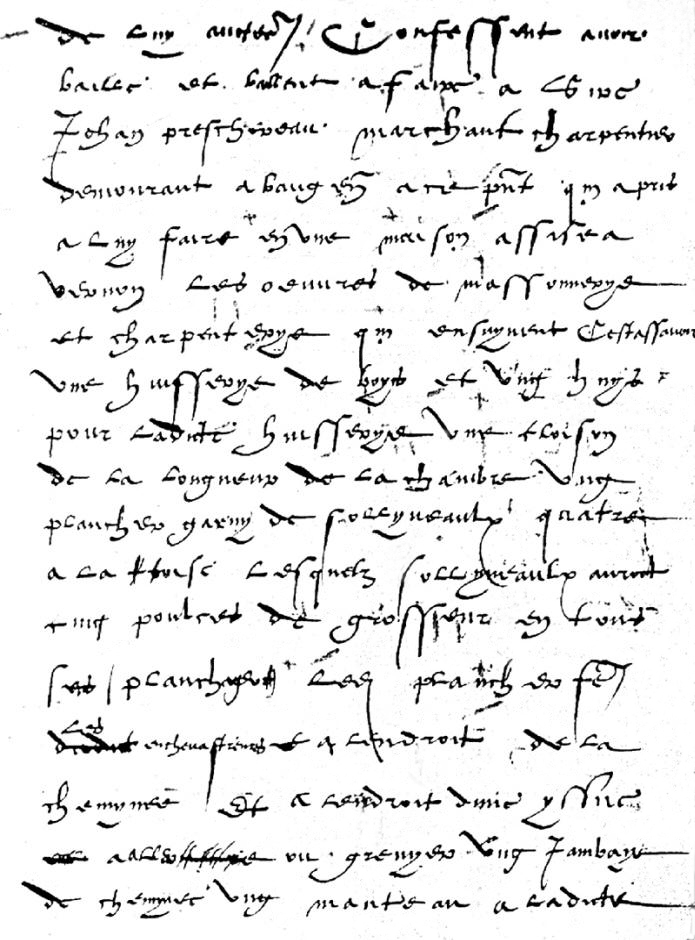 de luy auctor Confessent avoir
baillé et baillent a faire a
Jehan preschereau marchant charpentier
demourant a baugen a ce pnt qui a pris
a luy faire en une maison assise a
vernon les oeuvres de massonnerye
et charpenterye qui ensuyvent Cestassavoir
une huisserye de boys et ung huys
pour ladicte huisserye une cloison
de la longueur de la chambre ung
plancher garny de sollyveaulx quatre
a la toise lesquelz sollyveaulx auront
cinq poulces de grosseur en tous
sens planchager led plancher
Les enchevastreures et a lendroit de la
chemynee Et a lendroit dune yssue
a aller ou grenyer ung Jambaige
de chemynee ung manteau a ladicte